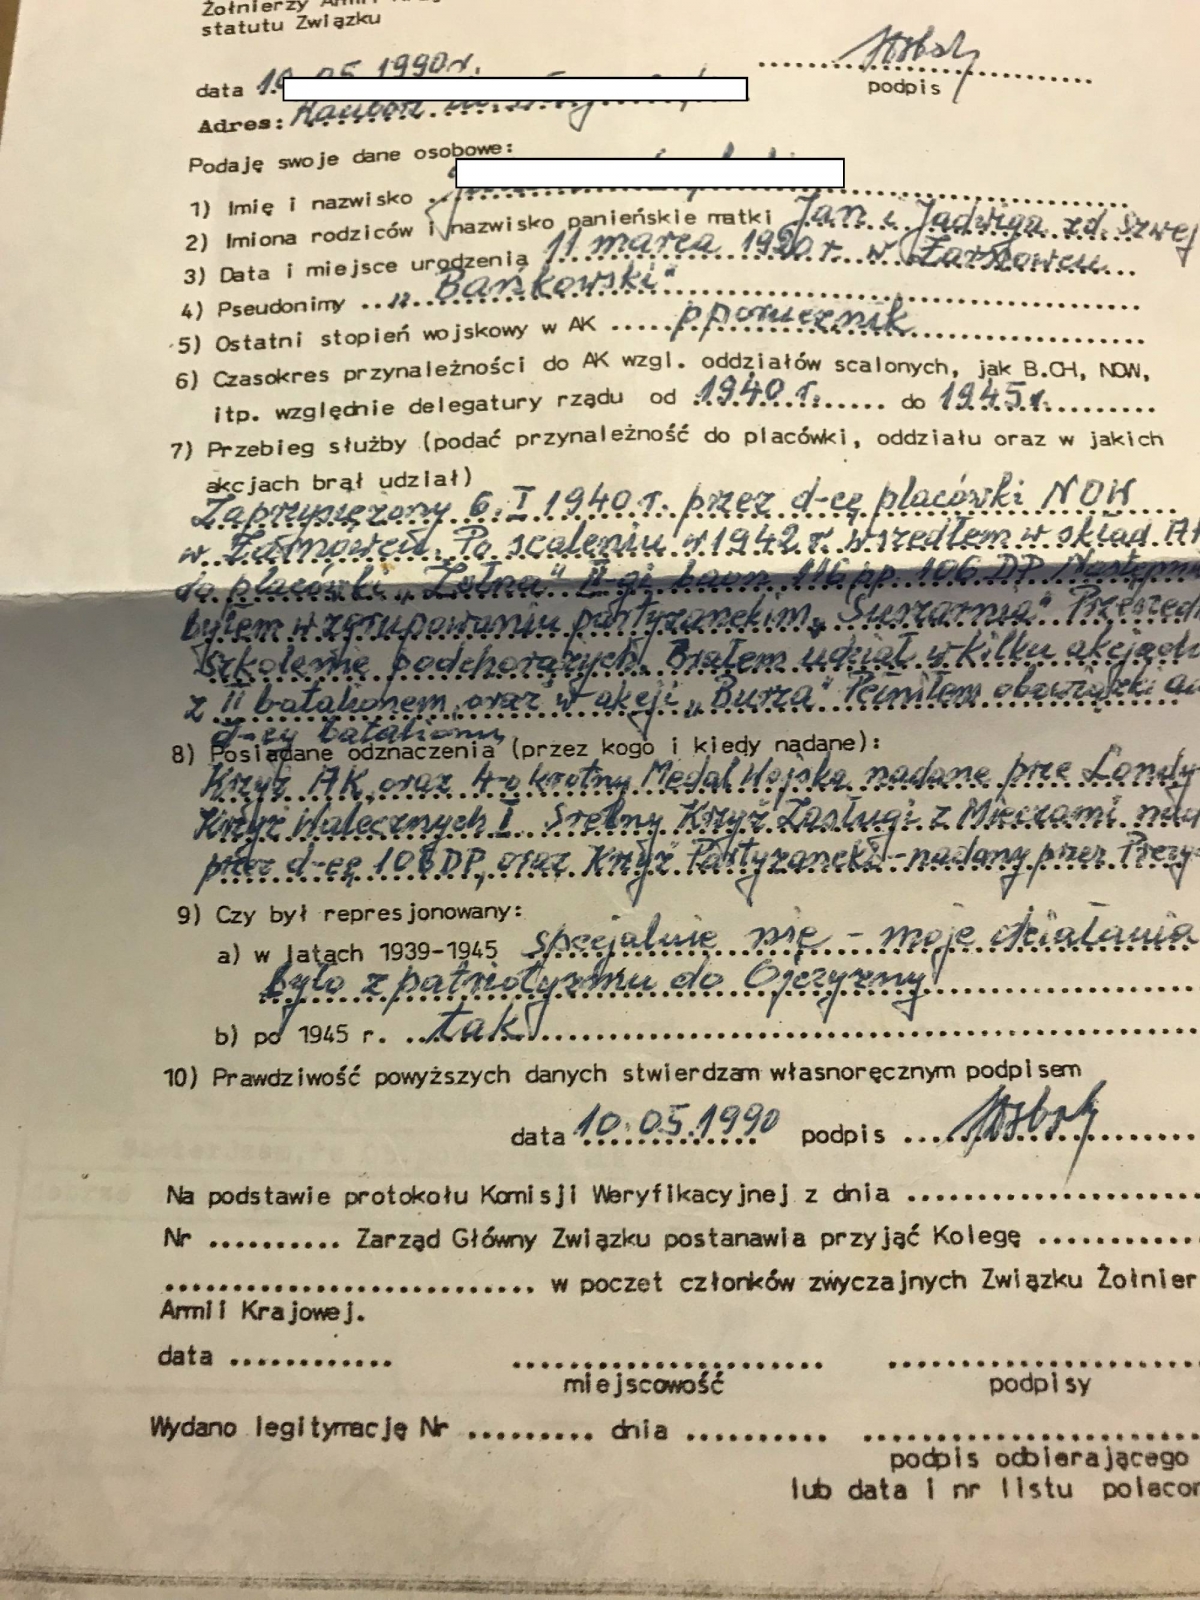 Żołnierzy Armii
statutu Związku
data 10.05.1990r.
podpis
Adres:
Podaję swoje dane osobowe:
1) Imię i nazwisko
2) Imiona rodziców i nazwisko panieńskie matki Jan i Jadwiga zd. Szwej
3) Data i miejsce urodzenia 11 marca 1920 r. w Żarnowcu
4) Pseudonimy „Bańkowski"
5) Ostatni stopień wojskowy w AK ..... pporucznik
6) Czasokres przynależności do AK wzgl. oddziałów scalonych, jak B.CH, NOW,
itp. względnie delegatury rządu od 1940 r. do 1945 r.
7) Przebieg służby (podać przynależność do placówki, oddziału oraz w jakich
akcjach brał udział)
Zaprzysiężony 6.I 1940 r. przez d-cę placówki NOW
w Żarnowcu. Po scaleniu w 1942 r. wszedłem w skład AK
do placówki „Żołna" II-gi baon 116 pp. 106 DP
byłem w zgrupowaniu partyzanckim „Suszarnia"
szkolenie podchorążych. Brałem udział w kilku akcjach
z II batalionem, oraz w akcji „Burza" Pełniłem obowiązki
d-cy batalionu
8) Posiadane odznaczenia (przez kogo i kiedy nadane):
Krzyż AK, oraz 4-o krotny Medal Wojska, nadane prze Londy-
Krzyż Walecznych I Srebny Krzyż Zasługi z Mieczami
przez d-cę 106 DP, oraz Krzyż Partyzancki - nadany przez Prezy-
9) Czy był represjonowany:
a) w latach 1939-1945 specjalnie nie - moje działania
było z patriotyzmu do Ojczyzny
b) po 1945 r. tak
10) Prawdziwość powyższych danych stwierdzam własnoręcznym podpisem
data 10.05.1990 podpis
Na podstawie protokołu Komisji Weryfikacyjnej z dnia ..........
Nr .......... Zarząd Główny Związku postanawia przyjąć Kolegę ..........
.............................. w poczet członków zwyczajnych Związku Żołnier
Armii Krajowej.
data .............
miejscowość podpisy
Wydano legitymację Nr ......... dnia ..........
podpis odbierającego
lub data i nr listu polecon